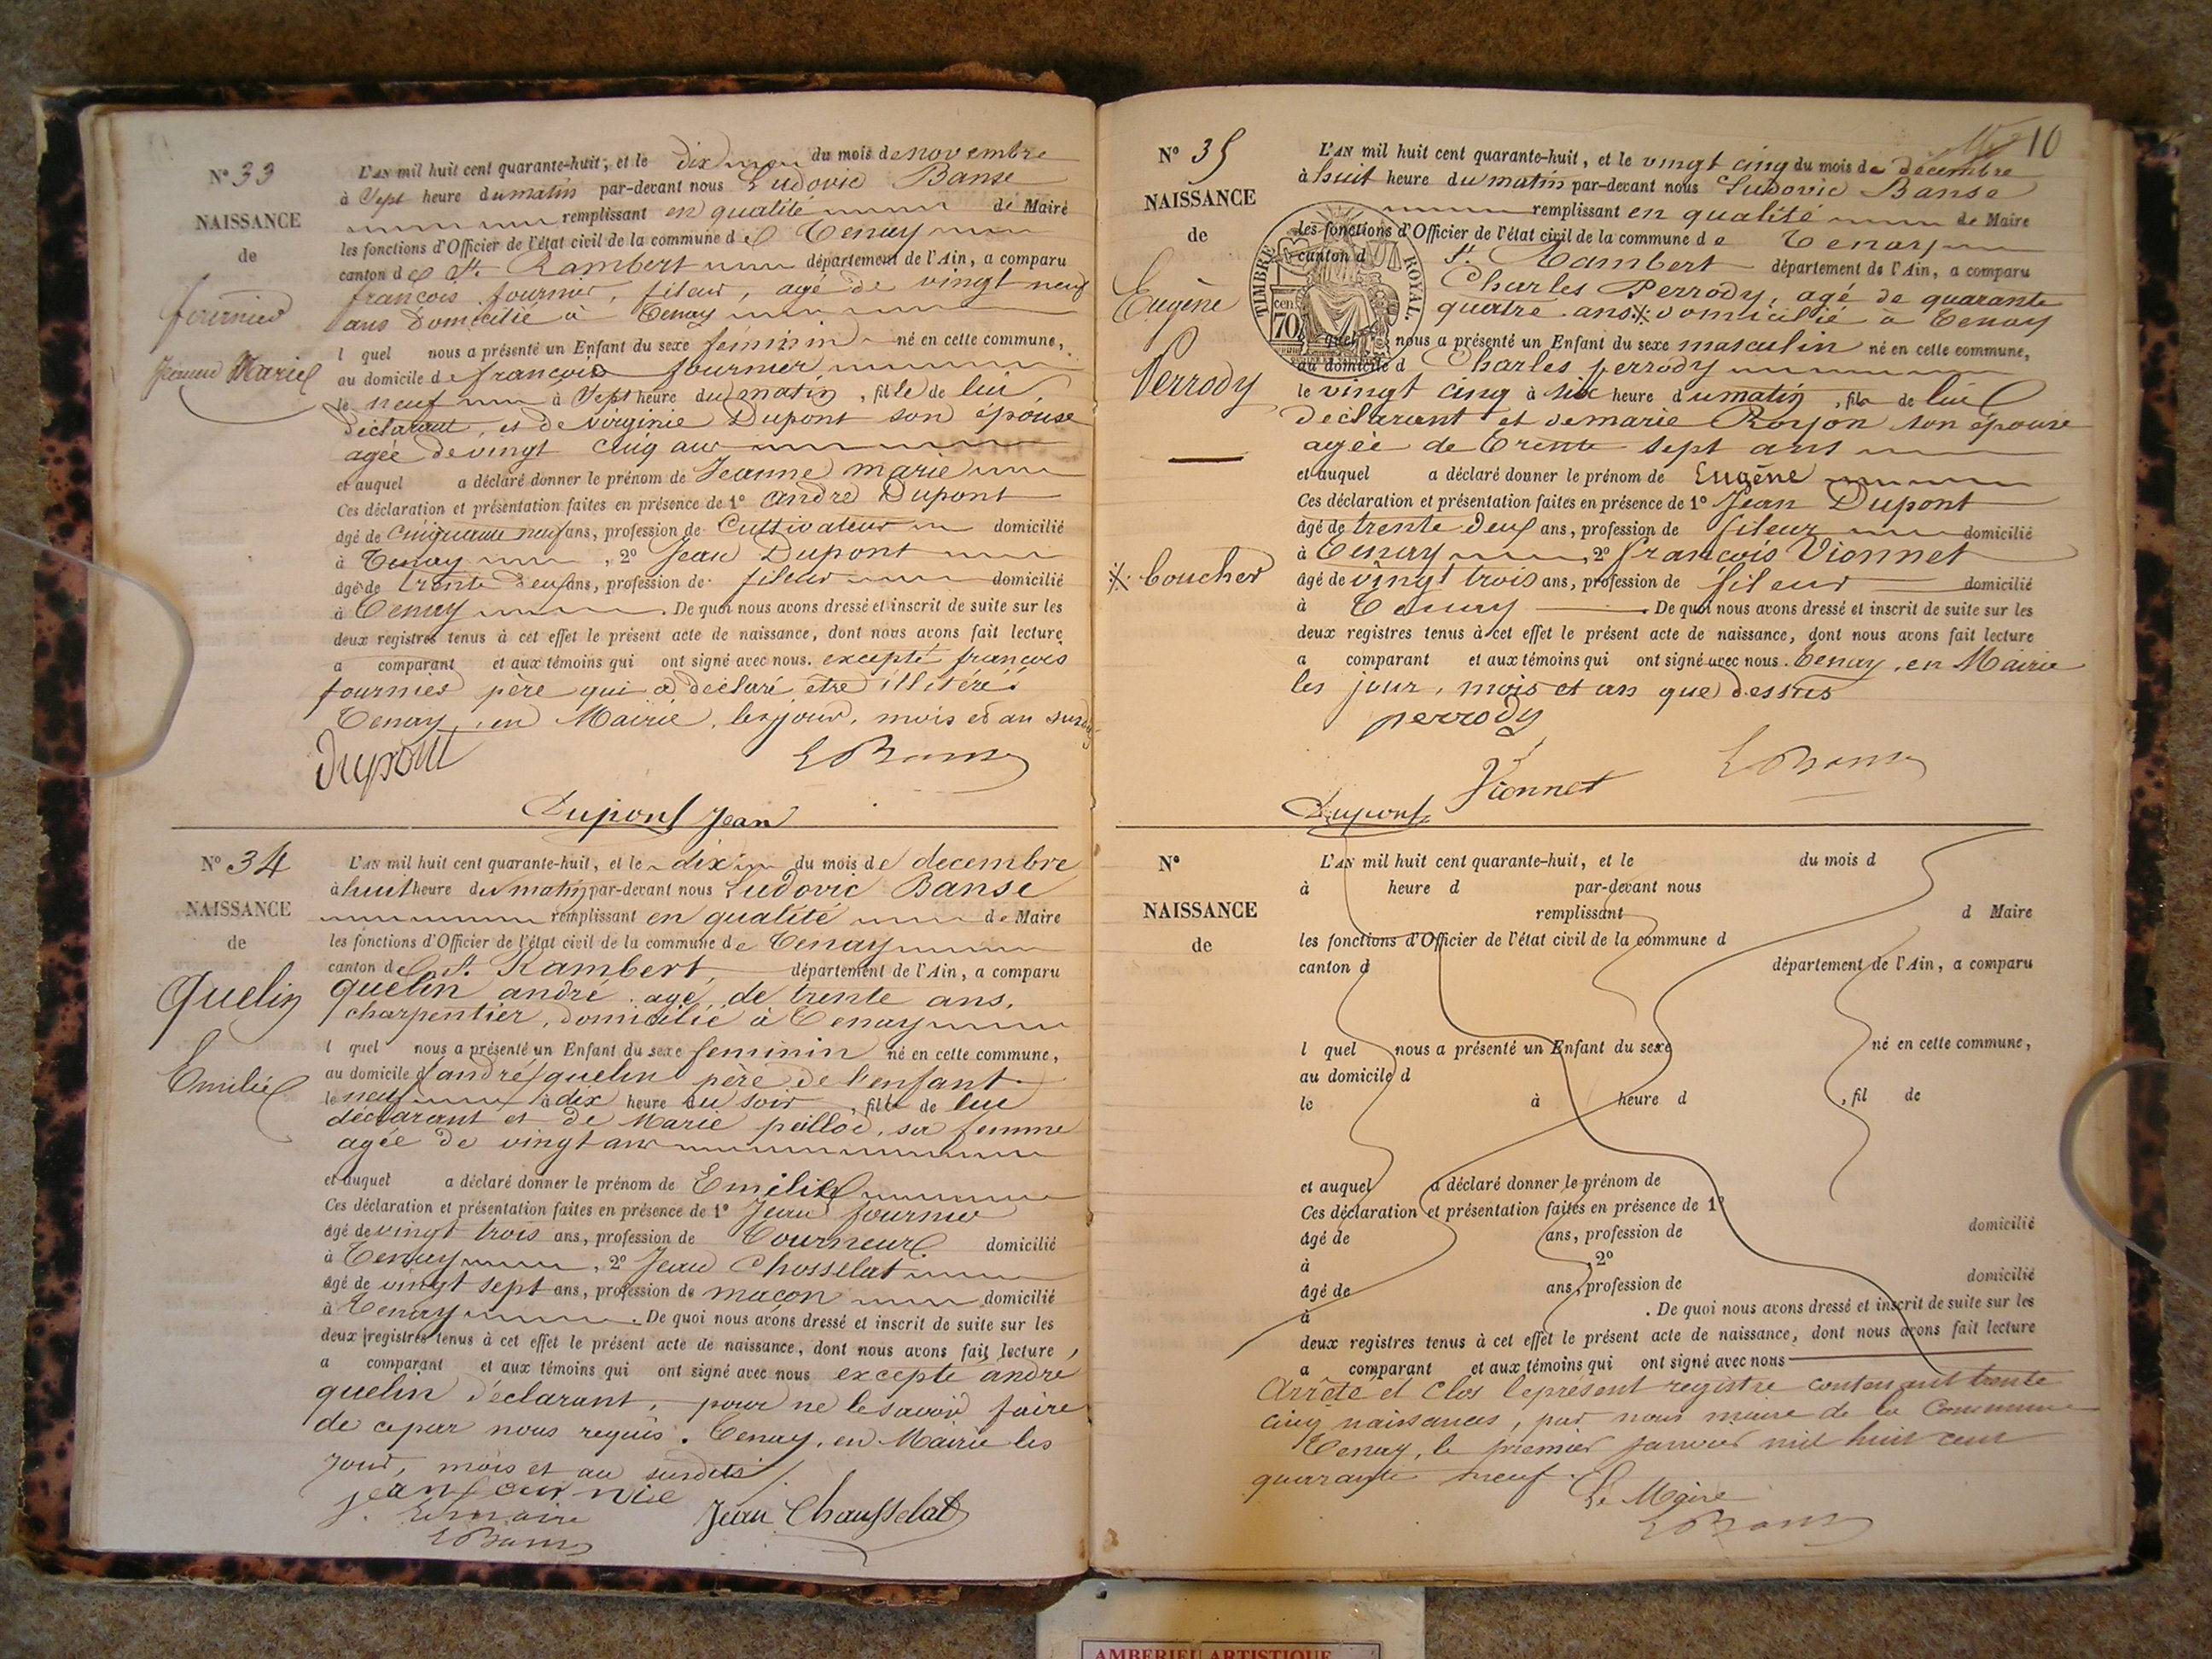 N° 33
NAISSANCE
de
fournier
Jeanne Marie
L'AN mil huit cent quarante-huit, et le dix du mois de novembre
à Sept heure du matin par-devant nous Ludovic Banse
remplissant en qualité de Maire
les fonctions d'Officier de l'état civil de la commune de Tenay
canton de St. Rambert département de l'Ain, a comparu
francois fournier, fileur, agé de vingt neuf
ans Domicilié à Tenay
l quel nous a présenté un Enfant du sexe féminin né en cette commune,
au domicile de francois fournier
le neuf à Sept heure du matin, fille de lui,
déclarant, et de virginie Dupont son épouse
agée de vingt cinq ans
et auquel a déclaré donner le prénom de Jeanne marie
Ces déclaration et présentation faites en présence de 1° andré Dupont
âgé de cinquante neuf ans, profession de Cultivateur domicilié
à Tenay, 2° Jean Dupont
âgé de trente deux ans, profession de fileur domicilié
à Tenay. De quoi nous avons dressé et inscrit de suite sur les
deux registres tenus à cet effet le présent acte de naissance, dont nous avons fait lecture
a comparant et aux témoins qui ont signé avec nous. excepté francois
fournier père qui a déclaré être illitéré.
Tenay, en Mairie, les jour, mois et an susdits
Dupont
L Banse
Dupont Jean
N° 34
NAISSANCE
de
Quelin
Emilie
L'AN mil huit cent quarante-huit, et le dix du mois de decembre
à huit heure du matin par-devant nous Ludovic Banse
remplissant en qualité de Maire
les fonctions d'Officier de l'état civil de la commune de Tenay
canton de St. Rambert, département de l'Ain, a comparu
quelin andré agé de trente ans,
charpentier, domicilié à Tenay
l quel nous a présenté un Enfant du sexe feminin né en cette commune,
au domicile d'andré quelin père de l'enfant
le neuf à dix heure du soir, fille de lui
déclarant et de Marie peilloé, sa femme
agée de vingt ans
et auquel a déclaré donner le prénom de Emilie
Ces déclaration et présentation faites en présence de 1° Jean fournier
âgé de vingt trois ans, profession de Tourneur domicilié
à Tenay, 2° Jean Chosselat
âgé de vingt sept ans, profession de maçon domicilié
à Tenay. De quoi nous avons dressé et inscrit de suite sur les
deux registres tenus à cet effet le présent acte de naissance, dont nous avons fait lecture,
a comparant et aux témoins qui ont signé avec nous excepté andré
quelin déclarant, pour ne le savoir faire
de ce par nous requis. Tenay, en Mairie les
jour, mois et an susdits.
jean fournie
Le maire
L Banse
Jean Chausselat
10
N° 35
NAISSANCE
de
Eugène
Perrody
L'AN mil huit cent quarante-huit, et le vingt cinq du mois de décembre
à huit heure du matin par-devant nous Ludovic Banse
remplissant en qualité de Maire
les fonctions d'Officier de l'état civil de la commune de Tenay
canton d St. Rambert département de l'Ain, a comparu
Charles Perrody, agé de quarante
quatre ans ※ domicilié à Tenay
TIMBRE ROYAL.
70 cen
quel nous a présenté un Enfant du sexe masculin né en cette commune,
au domicile d Charles perrody
le vingt cinq à six heure du matin, fils de lui
déclarant et de marie Royon son épouse
agée de trente sept ans
et auquel a déclaré donner le prénom de Eugène
Ces déclaration et présentation faites en présence de 1° Jean Dupont
âgé de trente deux ans, profession de fileur domicilié
à Tenay, 2° françois Vionnet
※ boucher
âgé de vingt trois ans, profession de fileur domicilié
à Tenay. De quoi nous avons dressé et inscrit de suite sur les
deux registres tenus à cet effet le présent acte de naissance, dont nous avons fait lecture
a comparant et aux témoins qui ont signé avec nous. Tenay, en Mairie
les jour, mois et an que dessus
perrody
L Banse
Vionnet
Dupont
N°
NAISSANCE
de
L'AN mil huit cent quarante-huit, et le du mois d
à heure d par-devant nous
remplissant d Maire
les fonctions d'Officier de l'état civil de la commune d
canton d département de l'Ain, a comparu
l quel nous a présenté un Enfant du sexe né en cette commune,
au domicile d
le à heure d, fil de
et auquel a déclaré donner le prénom de
Ces déclaration et présentation faites en présence de 1°
âgé de ans, profession de domicilié
à, 2°
âgé de ans, profession de domicilié
à. De quoi nous avons dressé et inscrit de suite sur les
deux registres tenus à cet effet le présent acte de naissance, dont nous avons fait lecture
a comparant et aux témoins qui ont signé avec nous
Arrêté et Clos le présent registre contenant trente
cinq naissances, par nous maire de la Commune
Tenay, le premier Janvier mil huit cent
quarante neuf.
Le Maire
L Banse
AMBERIEU ARTISTIQUE